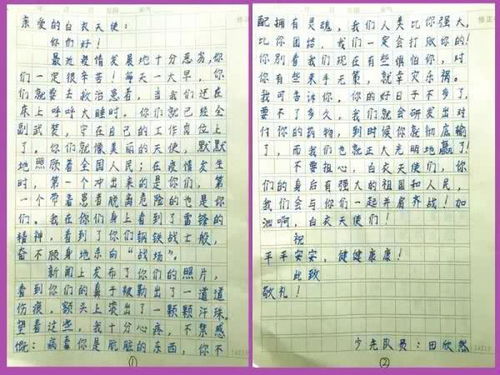 亲爱的白衣天使:
你们好!
最近疫情发展地十分恶劣,你
们一定很辛苦!每天一大早,你
们就要去救治患者,当我们还在
床上呼呼大睡时,你们就已经全
副武装,守在自己的工作岗位上
了。你们就像美丽的天使,默默
地照顾着全国人民;在疫情发生
时,第一个冲出来的是你们,第
一个带着患者脱离危险的也是你
们。我在你们身上看到了雷锋的
精神,看到了你们钢铁战士般,
奋不顾身地杀向“战场”。
新闻上发布了你们的照片,
看到你们的鼻子被勒出了一道道
伤痕,额头上突出了一颗颗汗珠。
望着这些,我十分心疼,不禁感
慨:病毒你是肮脏的东西,你不
①
配拥有灵魂,我们人类比你强大,
比你团结,我们一定会打败你的!
你别看我们现在有些惧怕你,对
你有些束手无策,就幸灾乐祸。
我可告诉你,你的好日子不多了,
要不了多久,我们就会研发出对
付你的药物,到时候你就彻底输
了,而我们也就正大光明地赢了!
不要担心,白衣天使们,你
们的身后有强大的祖国和人民,
我们会与你们一起并肩齐战!加
油啊,白衣天使们!
祝
平平安安,健健康康!
此致
敬礼!
少先队员:田欣然
②